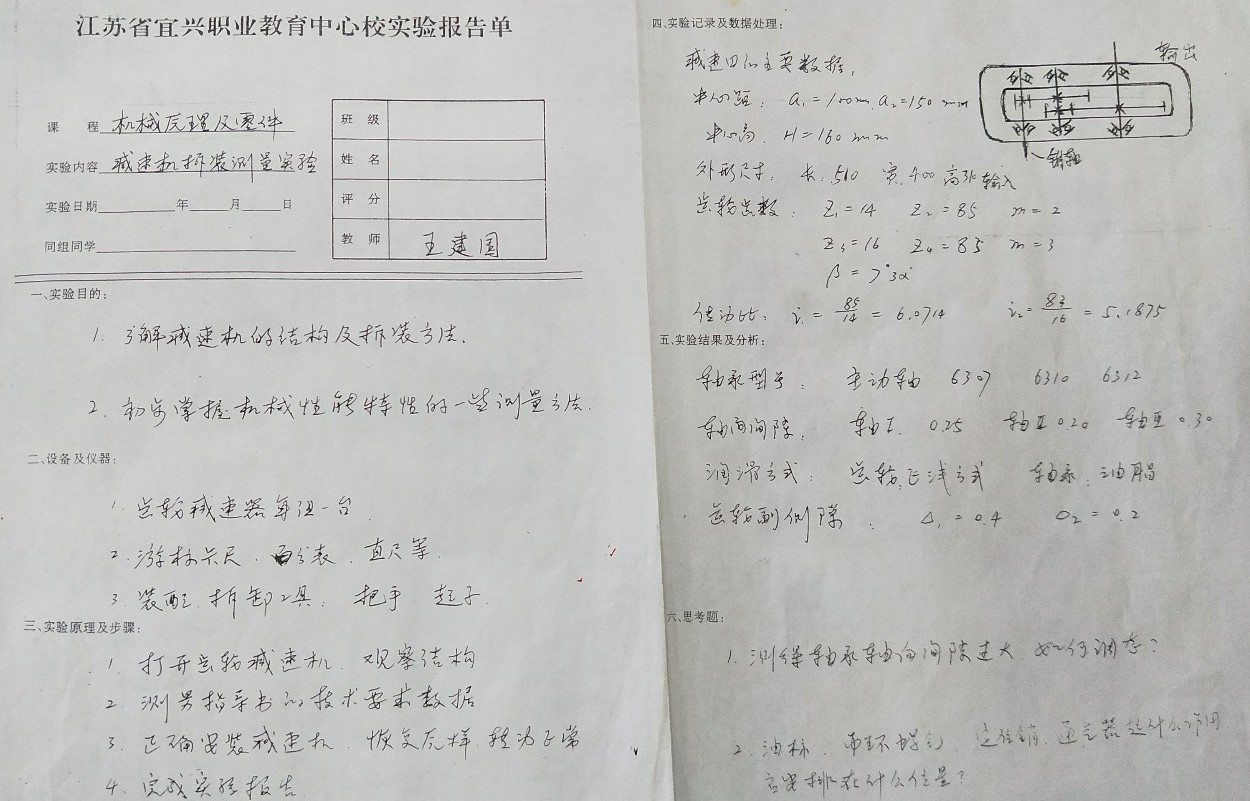 江苏省宜兴职业教育中心校实验报告单
课 程 机械原理及零件
实验内容 减速机拆装测量实验
实验日期 年 月 日
同组同学
班 级
姓 名
评 分
教 师 王建国
一、实验目的:
1. 了解减速机的结构及拆装方法.
2. 初步掌握机械性能特性的一些测量方法.
二、设备及仪器:
1. 齿轮减速器每组一台
2. 游标卡尺、百分表、直尺等.
3. 装配、拆卸工具: 把手 起子.
三、实验原理及步骤:
1. 打开齿轮减速机、观察结构
2. 测另指导书的技术要求数据
3. 正确安装减速机、恢复原样 转动正常
4. 完成实验报告
四、实验记录及数据处理:
减速四的主要数据,
输出
中心距: a₁=100mm. a₂=150 mm
中心高. H=160 mm
外形尺寸, 长.510 宽.400 输入
齿轮齿数: Z₁=14 Z₂=85 m=2
Z₃=16 Z₄=85 m=3
β=7°30′
传动比: i₁=85/14=6.0714 i₂=83/16=5.1875
五、实验结果及分析:
轴承型号: 主动轴 6307 6310 6312
轴向间隙: 轴I. 0.25 轴II 0.20 轴III 0.30
润滑方式: 齿轮.飞溅方式 轴承:油脂
齿轮副侧隙: Δ₁=0.4 Δ₂=0.2
六、思考题:
1. 测得轴承轴向间隙过大 如何调整?
2. 油标、吊环螺钉、定位销、通气器起什么作用
应安排在什么位置?